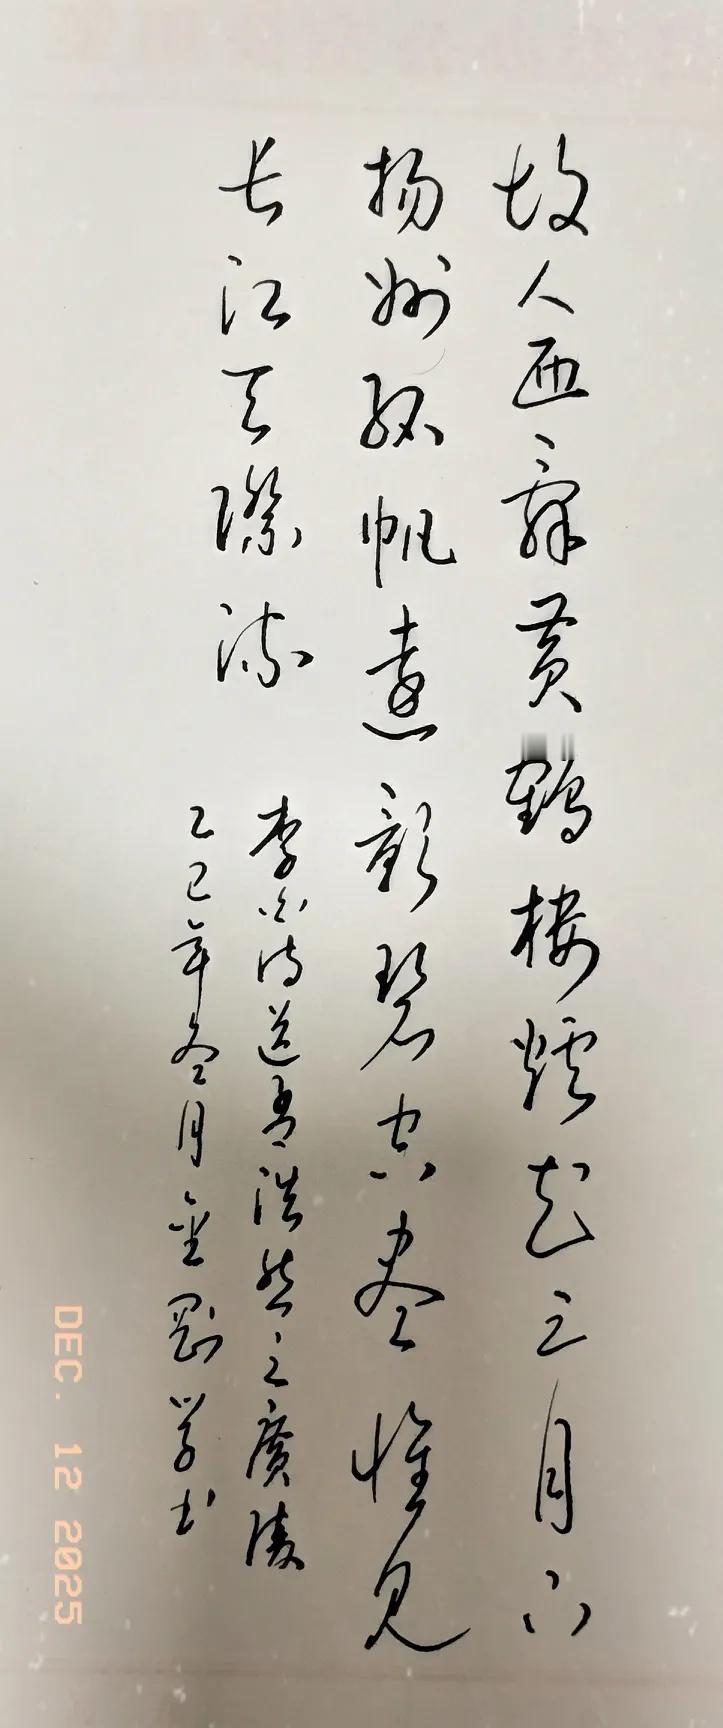 故人西辞黄鹤楼烟花三月下
扬州孤帆遠影碧空尽惟见
长江天際流
李白诗送孟浩然之廣陵
乙巳年冬月金剛学书
DEC. 12 2025